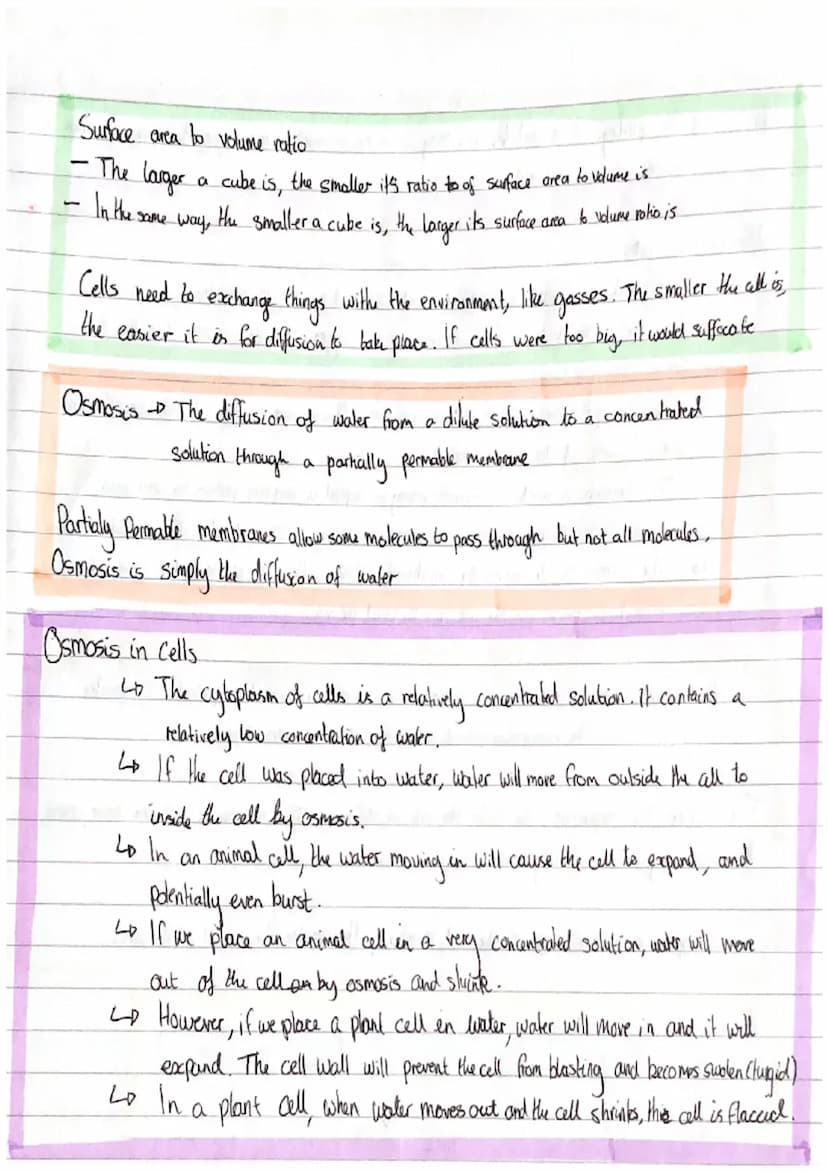 Surface area to volume ratio
- The larger a cube is, the smaller its ratio to of surface area to volume is
- In the same way, the smaller a cube is, the larger its surface area to volume ratio is
Cells need to exchange things withe the environment, like gasses. The smaller the cell is,
the easier it is for diffusion to take place. If cells were too big, it would suffocate
Osmosis → The diffusion of water from a dilute solution to a concentrated
solution through a partially permable membrane
Partialy Permable membranes allow some molecules to pass through but not all molecules.
Osmosis is simply the diffusion of water
Osmosis in Cells
↳ The cytoplasm of cells is a relatively concentrated solution. It contains a
relatively low concentration of water.
↳ If the cell was placed into water, water will move from outside the cell to
inside the cell by osmosis.
↳ In an animal cell, the water moving in will cause the cell to expand, and
potentially even burst.
↳ If we place an animal cell in a very concentrated solution, water will move
out of the cell by osmosis and shrink.
↳ However, if we place a plant cell en water, water will move in and it will
expand. The cell wall will prevent the cell from blasting and becomes swolen (turgid)
↳ In a plant cell, when water moves out and the cell shrinks, the cell is flaccid.